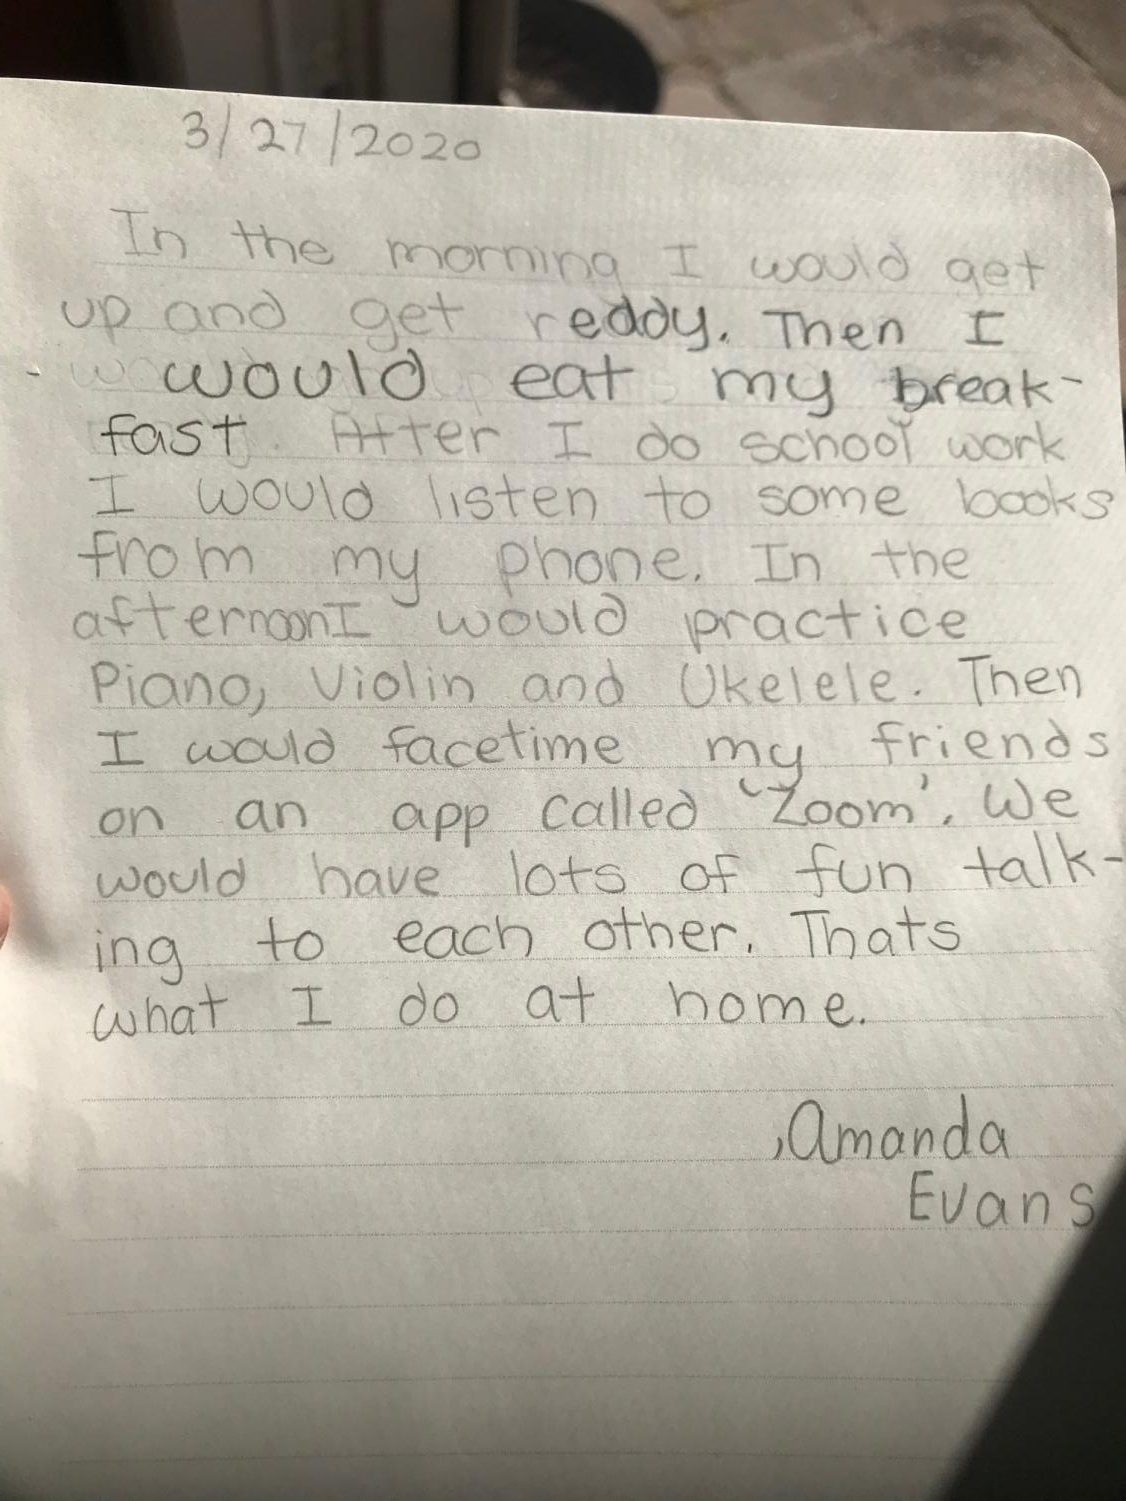 3/27/2020
In the morning I would get
up and get reddy. Then I
would eat my break-
fast. After I do school work
I would listen to some books
from my phone. In the
afternoon I would practice
Piano, Violin and Ukelele. Then
I would facetime my friends
on an app called 'Zoom'. We
would have lots of fun talk-
ing to each other. Thats
what I do at home.
,Amanda
Evans